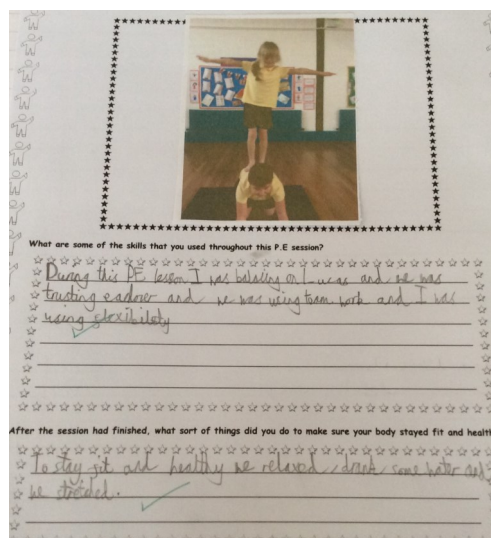 What are some of the skills that you used throughout this P.E session?
During this PE lesson I was balincy on Lucas and we was
trusting eachover and we was using team work and I was
using flexibility
After the session had finished, what sort of things did you do to make sure your body stayed fit and healt
To stay fit and healthy we relaxed, drank some water and
we streched.